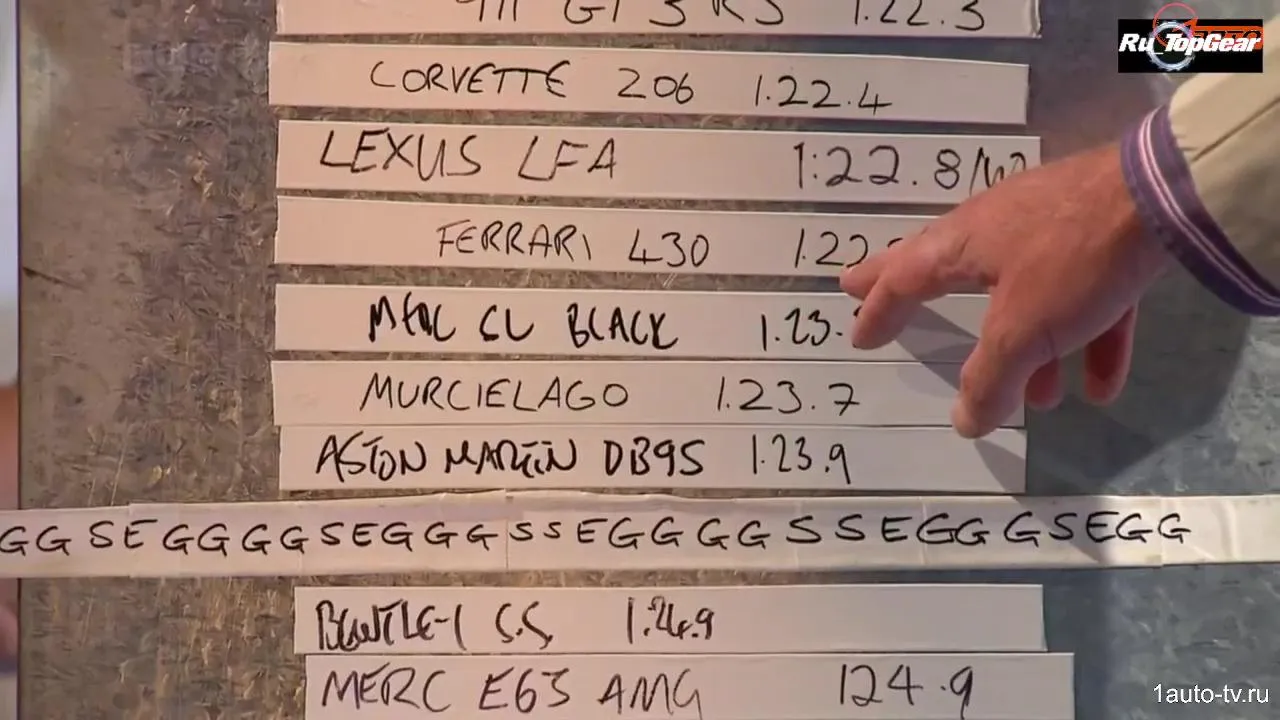 911 GT3 RS 1.22.3
Ru_TopGear
CORVETTE Z06 1.22.4
LEXUS LFA 1:22.8/
FERRARI 430 1.22
MERC SL BLACK 1.23.
MURCIELAGO 1.23.7
ASTON MARTIN DB9S 1.23.9
GGSEGGGGGSEGGGGSSEGGGGSSEGGGSEGG
BENTLEY S.S. 1.24.9
MERC E63 AMG 124.9
1auto-tv.ru